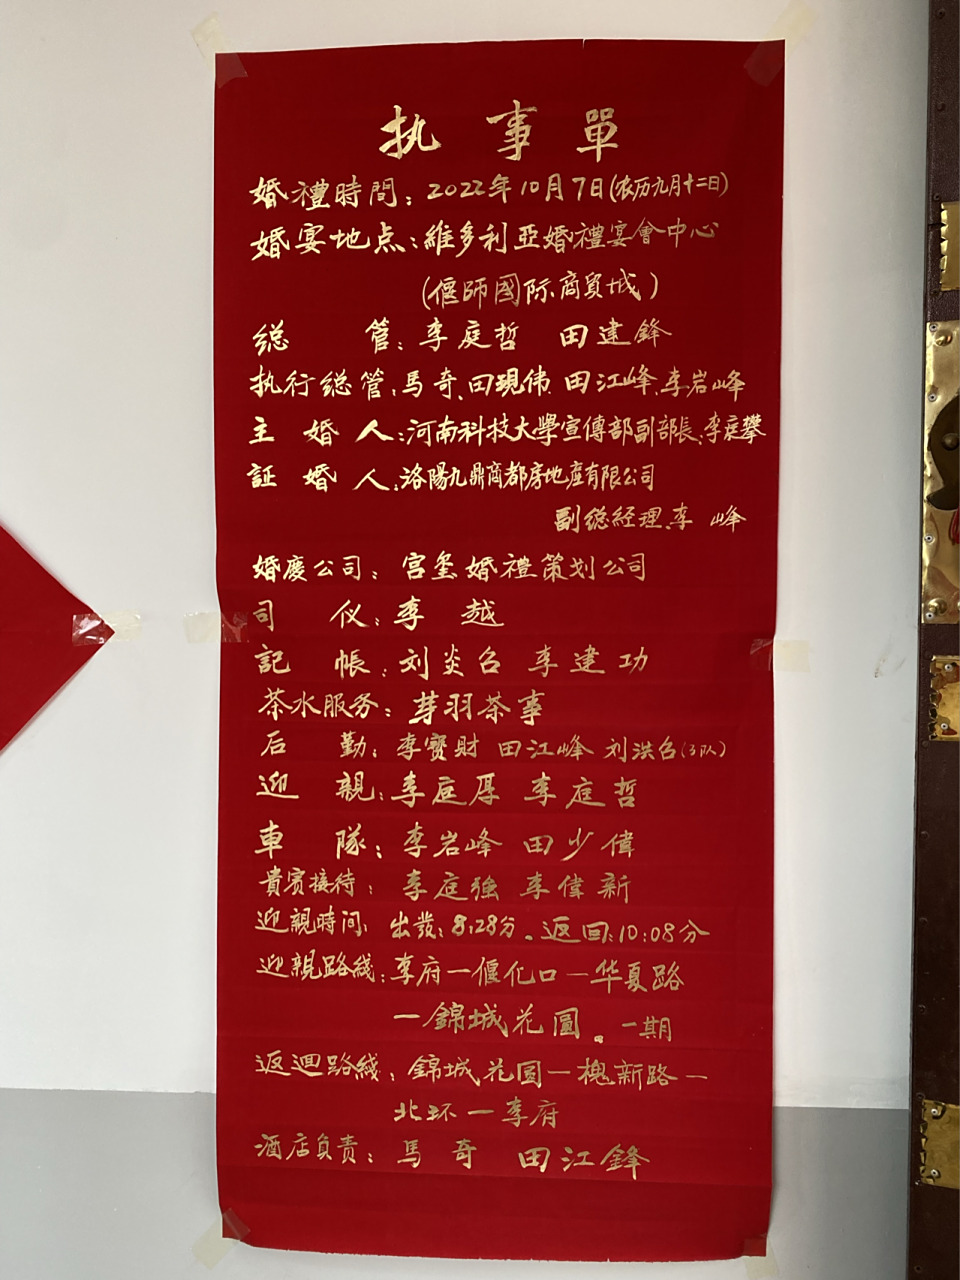 执事單
婚禮時間：2022年10月7日(农历九月十二日)
婚宴地点：維多利亞婚禮宴會中心
(偃師國际商貿城)
總 管：李庭哲 田建鋒
执行總管：馬奇、田現伟、田江峰、李岩峰
主婚人：河南科技大學宣傳部副部長：李庭攀
証婚人：洛陽九鼎商都房地產有限公司
副總經理：李 峰
婚慶公司：宫玺婚禮策划公司
司 仪：李 越
記 帳：刘炎召 李建功
茶水服务：芽羽茶事
后 勤：李寳財 田江峰 刘洪召(3队)
迎 親：李庭厚 李庭哲
車 隊：李岩峰 田少偉
貴賓接待：李庭強 李偉新
迎親時间：出發：8:28分。返回：10:08分
迎親路綫：李府一偃化口一华夏路
一錦城花園。一期
返迴路綫：錦城花园一槐新路一
北环一李府
酒店负责：馬奇 田江鋒